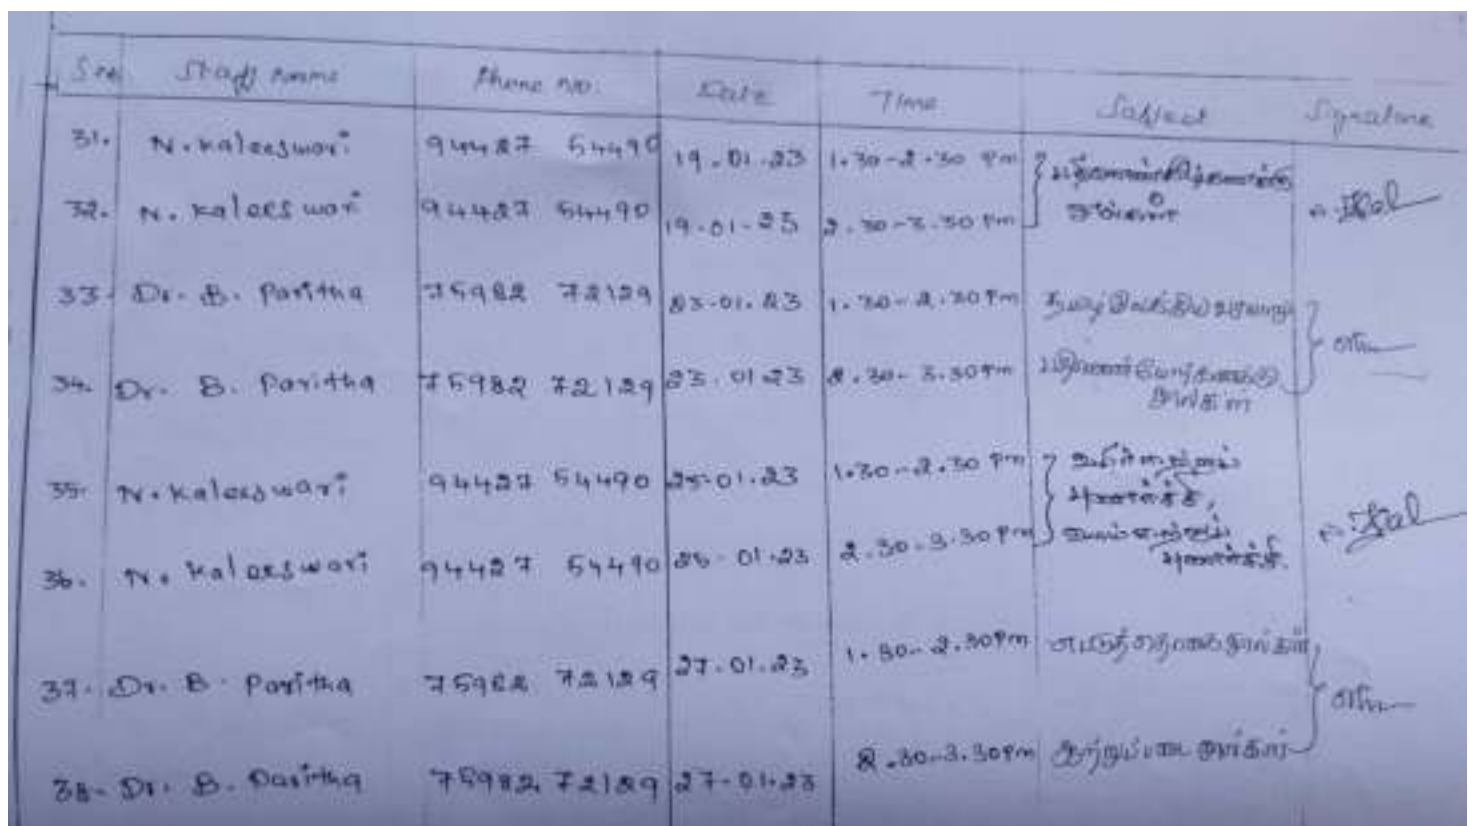 S.no Staff Name Phone No. Date Time Subject Signature
31. N. Kaleeswari 94427 54490 19.01.23 1.30-2.30 Pm
32. N. Kaleeswari 94427 54490 19.01.23 2.30-3.30 Pm
33. Dr. B. Paritha 75982 72129 23.01.23 1.30-2.30 Pm தமிழ் இலக்கிய வரலாறு
34. Dr. B. Paritha 75982 72129 23.01.23 2.30-3.30 Pm பதினெண் மேற்கணக்கு
நூல்கள்
35. N. Kaleeswari 94427 54490 25.01.23 1.30-2.30 Pm
36. N. Kaleeswari 94427 54490 25.01.23 2.30-3.30 Pm
37. Dr. B. Paritha 75982 72129 27.01.23 1.30-2.30 Pm எட்டுத்தொகை நூல்கள்
38. Dr. B. Paritha 75982 72129 27.01.23 2.30-3.30 Pm ஆற்றுப்படை நூல்கள்